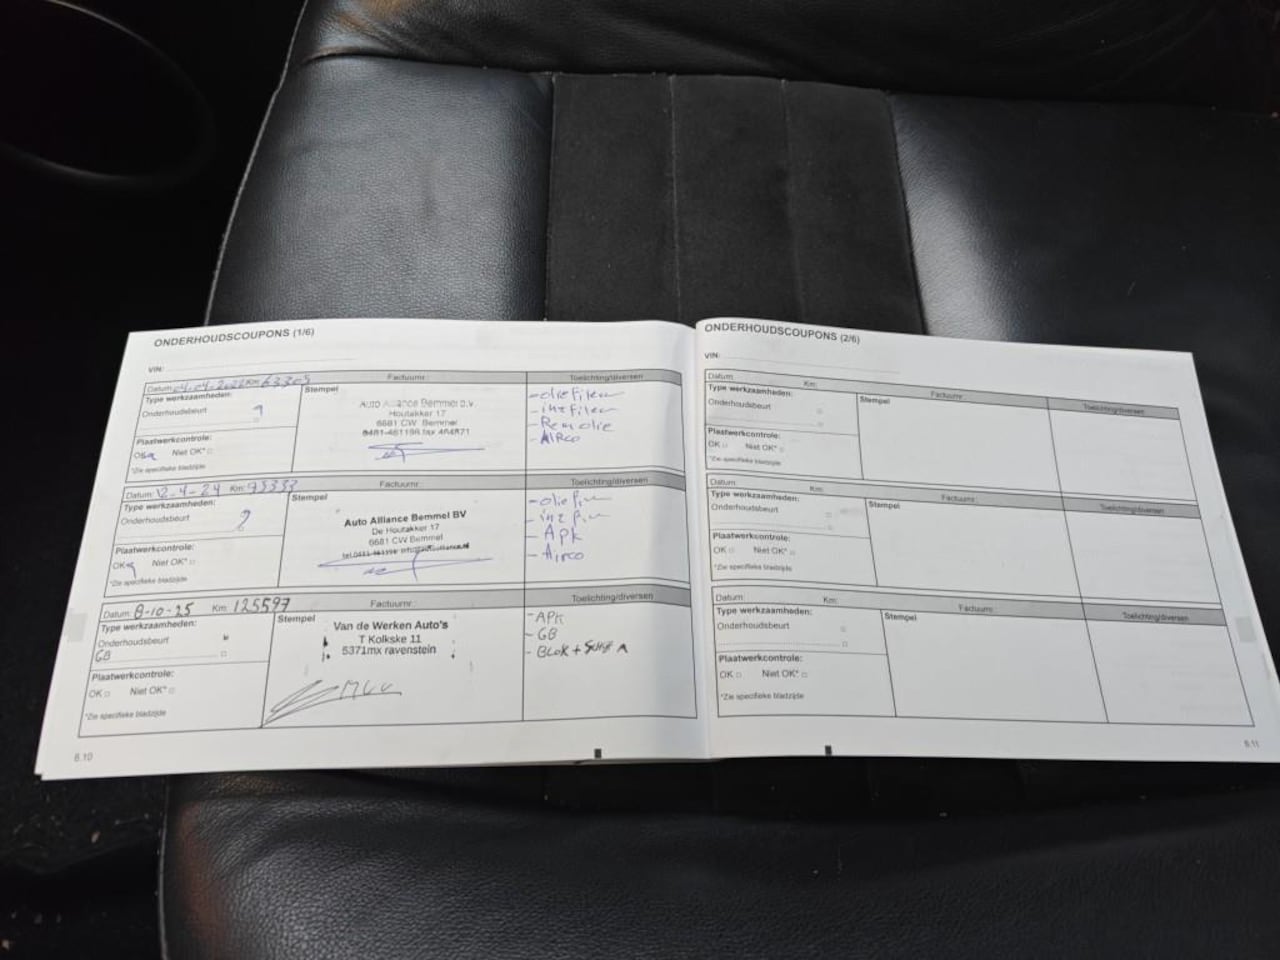 ONDERHOUDSCOUPONS (1/6)
VIN:
Datum: 04-04-2022 Km: 63309 Factuurnr.: Toelichting/diversen
Type werkzaamheden: Stempel
Onderhoudsbeurt
Auto Alliance Bemmel b.v.
Houtakker 17
6681 CW Bemmel
0481-461196 fax 464871
- oliefilter
- intfilter
- Remolie
- AIRCO
Plaatwerkcontrole:
OK Niet OK*
*Zie specifieke bladzijde
Datum: 12-4-24 Km: 93333 Factuurnr.: Toelichting/diversen
Type werkzaamheden: Stempel
Onderhoudsbeurt
Auto Alliance Bemmel BV
De Houtakker 17
6681 CW Bemmel
- APK
- Airco
Plaatwerkcontrole:
OK Niet OK*
*Zie specifieke bladzijde
Datum: 8-10-25 Km: 125597 Factuurnr.: Toelichting/diversen
Type werkzaamheden: Stempel
Onderhoudsbeurt
GB
Van de Werken Auto's
T Kolkske 11
5371mx ravenstein
- APK
- GB
- BLOK +
Plaatwerkcontrole:
OK Niet OK*
*Zie specifieke bladzijde
6.10
ONDERHOUDSCOUPONS (2/6)
VIN:
Datum: Km: Factuurnr.: Toelichting/diversen
Type werkzaamheden: Stempel
Onderhoudsbeurt
Plaatwerkcontrole:
OK Niet OK*
*Zie specifieke bladzijde
Datum: Km: Factuurnr.: Toelichting/diversen
Type werkzaamheden: Stempel
Onderhoudsbeurt
Plaatwerkcontrole:
OK Niet OK*
*Zie specifieke bladzijde
Datum: Km: Factuurnr.: Toelichting/diversen
Type werkzaamheden: Stempel
Onderhoudsbeurt
Plaatwerkcontrole:
OK Niet OK*
*Zie specifieke bladzijde
6.11